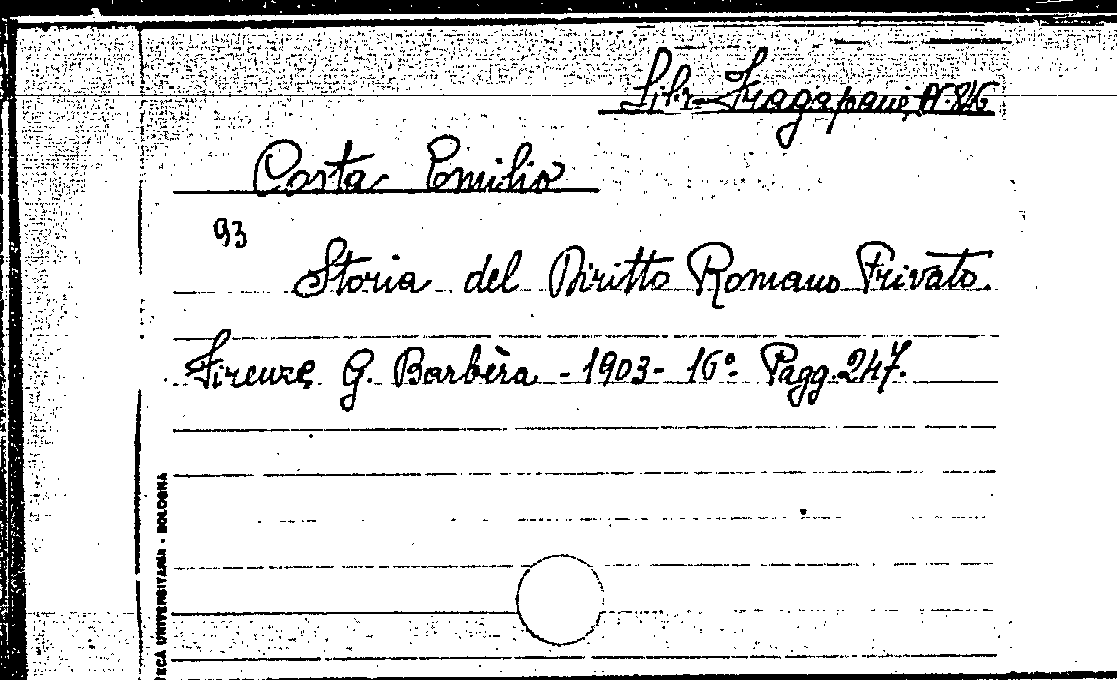 Libr. Fragapane, N. 846
Costa Emilio
93
Storia del Diritto Romano Privato.
Firenze G. Barbèra - 1903 - 16º. Pagg. 247.
TECA UNIVERSITARIA - BOLOGNA